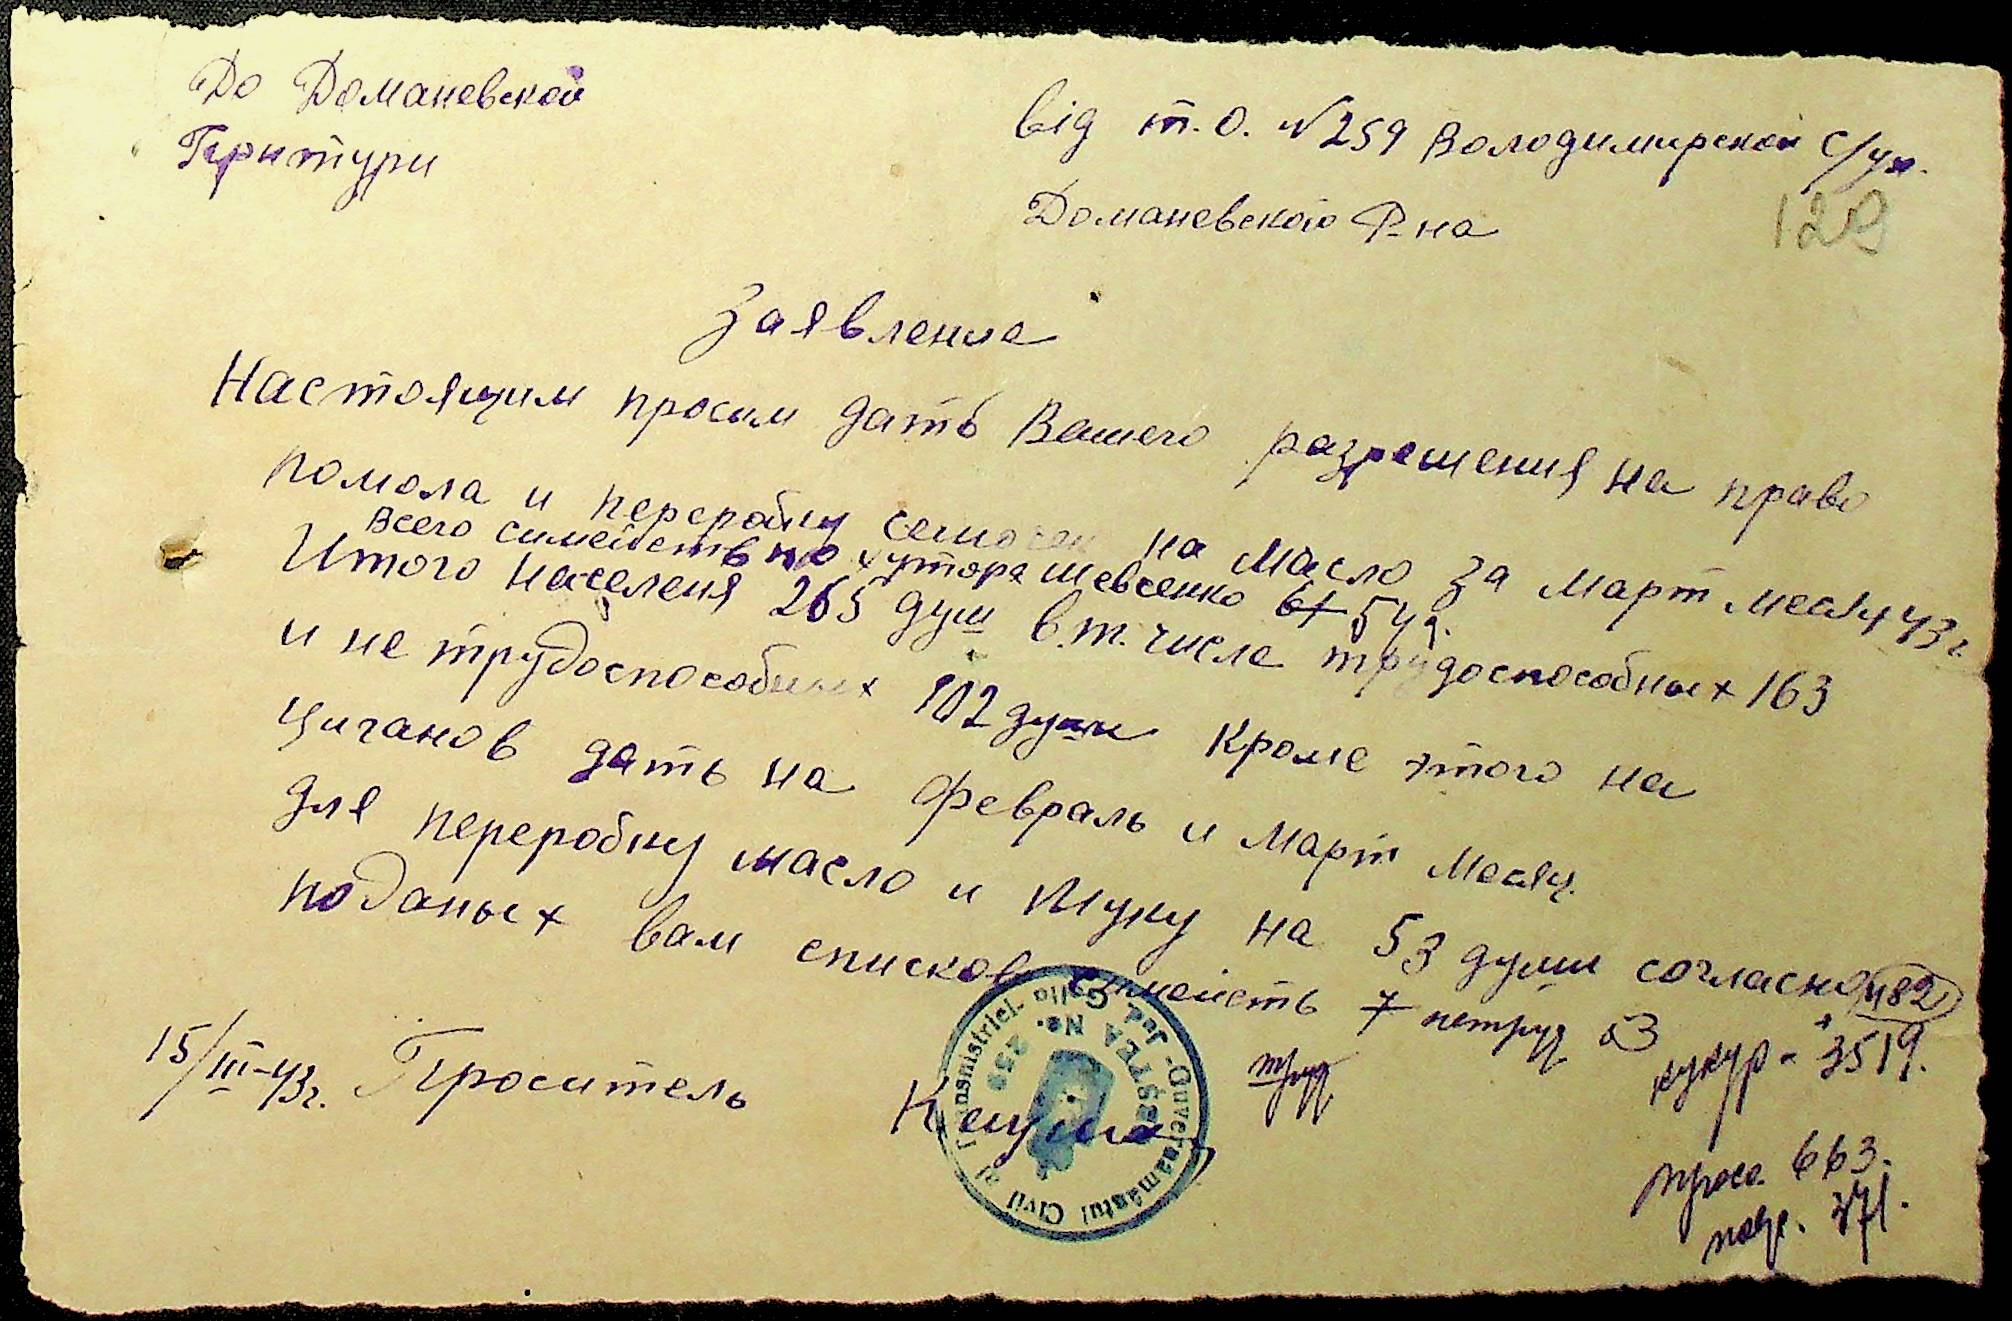 До Доманевской
Притури
від т.О. №259 Володимирской С/ух.
Доманевского Р-на
129
Заявление
Настоящим просим дать Вашего разрешения на право
помола и переробку семячек на масло за Март месяц 43 г.
всего симейств по хутора Шевсенко 61 54.
Итого населеня 265 душ в.т. числе трудоспособных 163
и не трудоспособных 102 души Кроме этого на
циганов дать на Февраль и Март Месяц.
для переробку масло и муку на 53 души согласно
поданых вам списков симейсть 7 нетруд 3
труд
482
кукур - 3519.
просо 663.
371.
15/III-43г. Проситель
Guvernamântul Civil al Transnistriei - Jud. Golta
No. 259